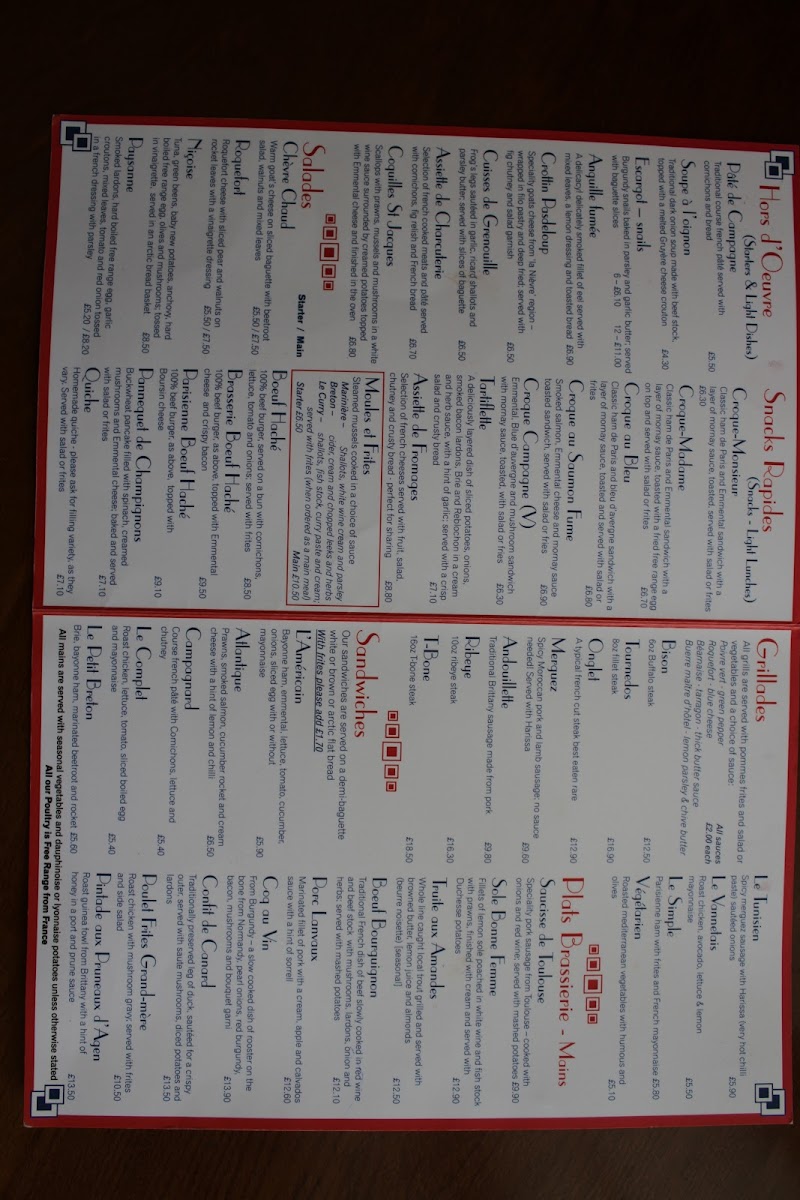 Hors d'Oeuvre
(Starters & Light Dishes)
Pâté de Campagne
Traditional course french pâté served with
cornichons and bread £5.50
Soupe à l'oignon
Traditional dark onion soup made with beef stock,
topped with a melted Gruyère cheese crouton £4.30
Escargot – snails
Burgundy snails baked in parsley and garlic butter; served
with baguette slices 6 - £6.10 12 - £11.00
Anguille fumée
A delicacy! delicately smoked fillet of eel served with
mixed leaves, a lemon dressing and toasted bread £6.90
Crottin Pasteloup
Speciality goats cheese from 'la Nièvre' region –
wrapped in filo pastry and deep fried; served with
fig chutney and salad garnish £6.50
Cuisses de Grenouille
Frog's legs sautéed in garlic, ricard shallots and
parsley butter; served with slices of baguette £6.50
Assiette de Charcuterie
Selection of french cooked meats and pâté served
with cornichons, fig relish and French bread £6.70
Coquilles St Jacques
Scallops with prawns, mussels and mushrooms in a white
wine sauce surrounded by creamed potatoes topped
with Emmental cheese and finished in the oven £6.80
Salades
Starter / Main
Chèvre Chaud
Warm goat's cheese on sliced baguette with beetroot
salad, walnuts and mixed leaves £5.50 / £7.50
Roquefort
Roquefort cheese with sliced pear and walnuts on
rocket leaves with a vinaigrette dressing £5.50 / £7.50
Niçoise
Tuna, green beans, baby new potatoes, anchovy, hard
boiled free range egg, olives and mushrooms; tossed
in vinaigrette, served in an arctic bread basket £8.50
Paysanne
Smoked lardons, hard boiled free range egg, garlic
croutons, mixed leaves, tomato and red onion tossed
in a french dressing with parsley £5.20 / £8.20
Snacks Rapides
(Snacks - Light Lunches)
Croque-Monsieur
Classic ham de Paris and Emmental sandwich with a
layer of mornay sauce, toasted, served with salad or frites
£6.30
Croque-Madame
Classic ham de Paris and Emmental sandwich with a
layer of mornay sauce, toasted with a fried free range egg
on top and served with salad or frites £6.70
Croque au Bleu
Classic ham de Paris and bleu d'auvergne sandwich with a
layer of mornay sauce, toasted and served with salad or
frites £6.80
Croque au Saumon Fume
Smoked salmon, Emmental cheese and mornay sauce
toasted sandwich, served with salad or frites £6.90
Croque Campagne (V)
Emmental, Blue d'auvergne and mushroom sandwich
with mornay sauce, toasted, with salad or frites £6.30
Tartiflette
A deliciously layered dish of sliced potatoes, onions,
smoked bacon lardons, Brie and Reblochon in a cream
and herb sauce, with a hint of garlic; served with a crisp
salad and crusty bread £7.10
Assiette de Fromages
Selection of french cheeses served with fruit, salad,
chutney and crusty bread - perfect for sharing £8.80
Moules et Frites
Steamed mussels cooked in a choice of sauce
Marinière – Shallots, white wine cream and parsley
Breton – cider, cream and chopped leeks and herbs
Le Curry – shallots, fish stock, curry paste and cream
served with frites (when ordered as a main meal)
Starter £6.50 Main £10.50
Boeuf Haché
100% beef burger, served on a bun with cornichons,
lettuce, tomato and onions; served with frites £8.50
Brasserie Boeuf Haché
100% beef burger, as above, topped with Emmental
cheese and crispy bacon £9.50
Parisienne Boeuf Haché
100% beef burger, as above, topped with
Boursin cheese £9.10
Pannequet de Champignons
Buckwheat pancake filled with spinach, creamed
mushrooms and Emmental cheese baked and served
with salad or frites £7.10
Quiche
Homemade quiche - please ask for filling variety, as they
vary. Served with salad or frites £7.10
Grillades
All grills are served with pommes frites and salad or
vegetables and a choice of sauce:
Poivre vert - green pepper
Roquefort - blue cheese
Béarnaise - tarragon - thick butter sauce
Buerre maître d'hôtel - lemon parsley & chive butter
All sauces
£2.00 each
Bison
6oz Buffalo steak £12.50
Tournedos
8oz fillet steak £16.90
Onglet
A typical french cut steak best eaten rare £12.90
Merguez
Spicy Moroccan pork and lamb sausage; no sauce
needed! Served with Harissa £9.60
Andouillette
Traditional Brittany sausage made from pork £9.80
Ribeye
10oz ribeye steak £16.30
T-Bone
16oz T-bone steak £18.50
Sandwiches
Our sandwiches are served on a demi-baguette
white or brown or arctic flat bread
With frites please add £1.70
L'Américain
Bayonne ham, emmental, lettuce, tomato, cucumber,
onions, sliced egg with or without
mayonnaise £5.90
Atlantique
Prawns, smoked salmon, cucumber rocket and cream
cheese with a hint of lemon and chilli £6.50
Campagnard
Course french pâté with Cornichons, lettuce and
chutney £5.40
Le Complet
Roast chicken, lettuce, tomato, sliced boiled egg
and mayonnaise £5.40
Le Petit Breton
Brie, bayonne ham, marinated beetroot and rocket £5.60
Le Tunisien
Spicy merguez sausage with Harissa (very hot chilli
paste) sautéed onions £5.90
Le Viennolais
Roast chicken, avocado, lettuce & lemon
mayonnaise £5.50
Le Simple
Parisienne ham with frites and French mayonnaise £5.80
Végétarien
Roasted mediterranean vegetables with humous and
olives £5.10
Plats Brasserie - Mains
Saucisse de Toulouse
Speciality pork sausage from Toulouse – cooked with
onions and red wine; served with mashed potatoes £9.90
Sole Bonne Femme
Fillets of lemon sole poached in white wine and fish stock
with prawns, finished with cream and served with
Duchesse potatoes £12.90
Truite aux Amandes
Whole line caught local trout grilled and served with
browned butter, lemon juice and almonds
(beurre noisette) [seasonal] £12.50
Boeuf Bourguignon
Traditional French dish of beef slowly cooked in red wine
and beef stock, with mushrooms, lardons, onion and
herbs; served with mashed potatoes £12.10
Porc Lanvaux
Marinated fillet of pork with a cream, apple and calvados
sauce with a hint of sorrell £12.60
Coq au Vin
From Burgundy – a slow cooked dish of rooster on the
bone from Normandy, pearl onions, red burgundy,
bacon, mushrooms and bouquet garni £13.90
Confit de Canard
Traditionally preserved leg of duck, sautéed for a crispy
outer, served with saute mushrooms, diced potatoes and
lardons £13.50
Poulet Frites Grand-mère
Roast chicken with mushroom gravy; served with frites
and side salad £10.50
Pintade aux Pruneaux d'Agen
Roast guinea fowl from Brittany with a hint of
honey in a port and prune sauce £13.50
All mains are served with seasonal vegetables and dauphinoise or lyonnaise potatoes unless otherwise stated
All our Poultry is Free Range from France